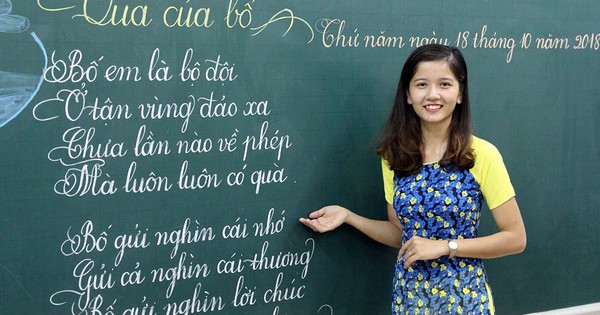 Quà của bố
Thứ năm ngày 18 tháng 10 năm 2018
Bố em là bộ đội
Ở tận vùng đảo xa
Chưa lần nào về phép
Mà luôn luôn có quà.
Bố gửi nghìn cái nhớ
Gửi cả nghìn cái thương
Bố gửi nghìn lời chúc